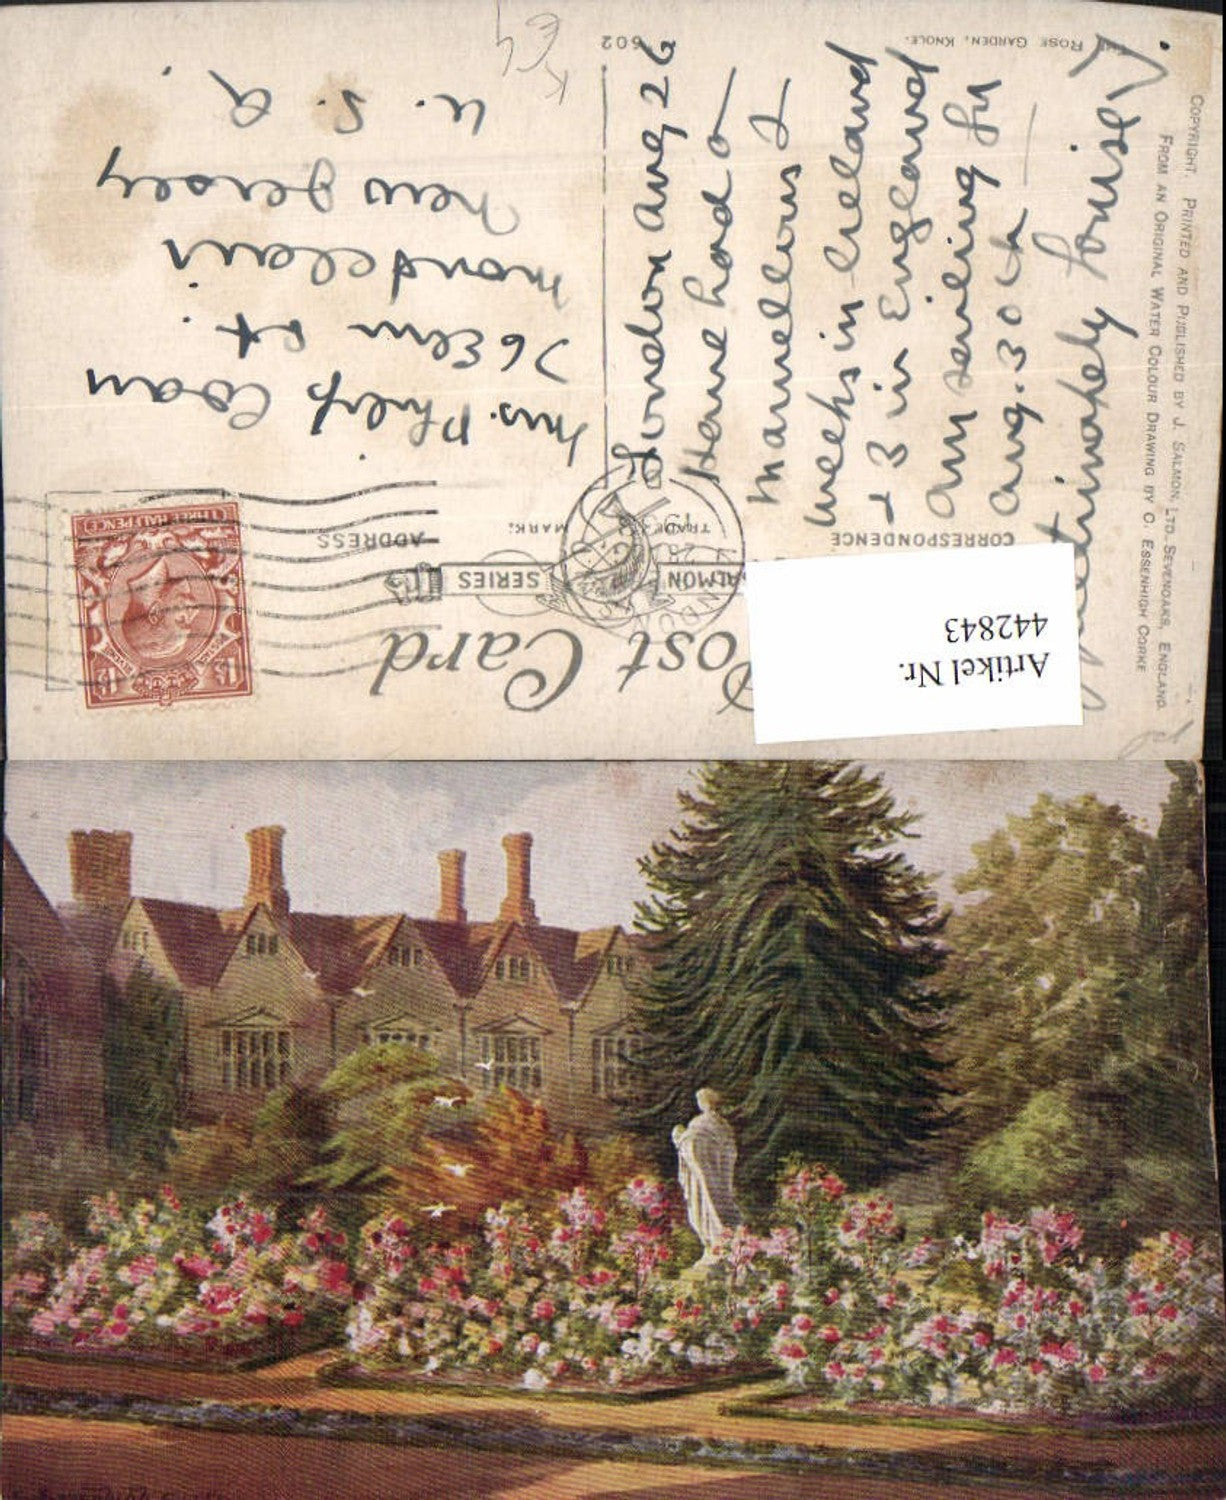 Post Card
SALMON SERIES
TRADE MARK:
CORRESPONDENCE
ADDRESS
THREE HALF PENCE
POSTAGE
REVENUE
London Aug 26
Have had a
marvellous 2
weeks in Ireland
+ 3 in England
Am sailing for
Aug. 30th
Louise
Mrs. Philip Coan
26 Elm St.
Montclair
New Jersey
U. S. A.
THE ROSE GARDEN, KNOLE.
602
COPYRIGHT. PRINTED AND PUBLISHED BY J. SALMON, LTD. SEVENOAKS, ENGLAND.
FROM AN ORIGINAL WATER COLOUR DRAWING BY C. ESSENHIGH CORKE
Artikel Nr.
442843